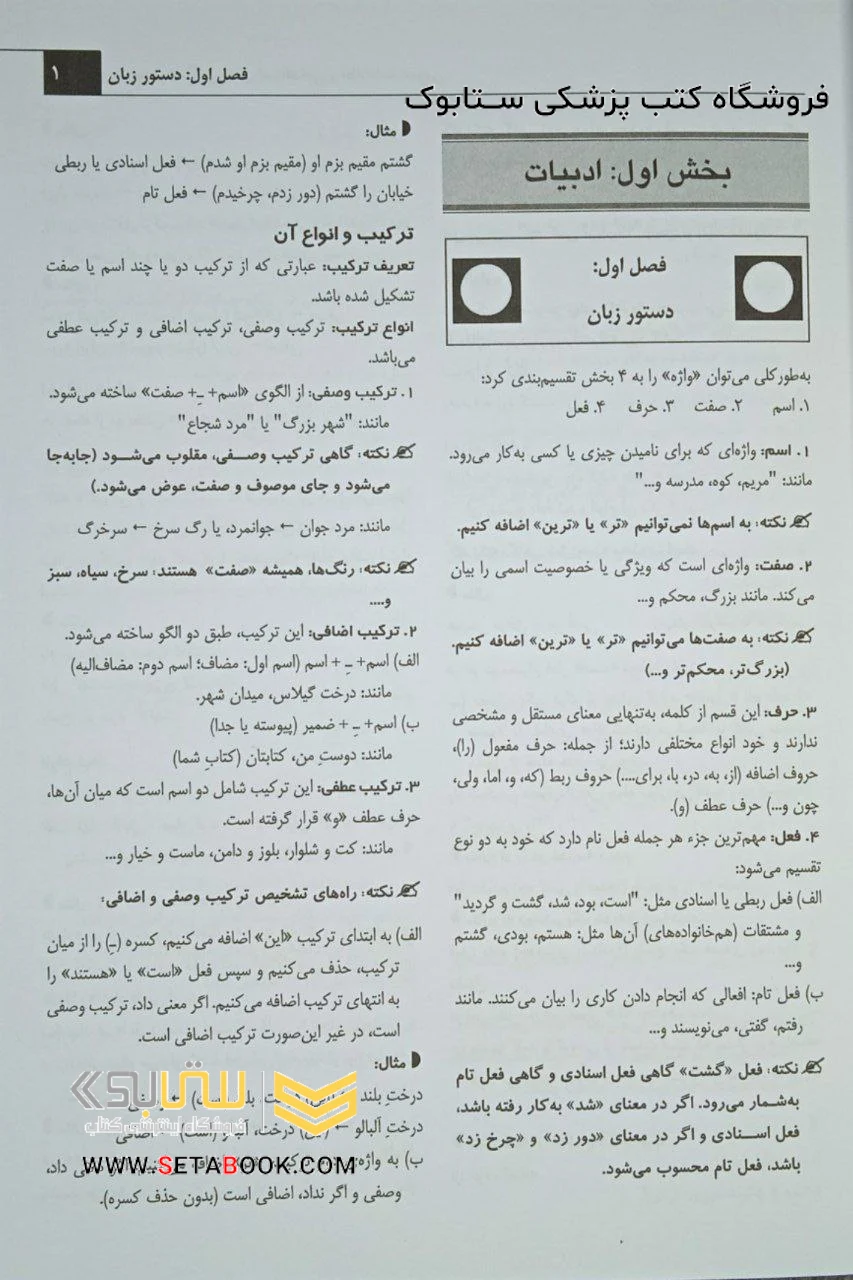 فصل اول: دستور زبان ۱
فروشگاه کتب پزشکی ستابوک
بخش اول: ادبیات
فصل اول:
دستور زبان
به‌طورکلی می‌توان «واژه» را به ۴ بخش تقسیم‌بندی کرد:
۱. اسم ۲. صفت ۳. حرف ۴. فعل
۱. اسم: واژه‌ای که برای نامیدن چیزی یا کسی به‌کار می‌رود.
مانند: "مریم، کوه، مدرسه و..."
نکته: به اسم‌ها نمی‌توانیم «تر» یا «ترین» اضافه کنیم.
۲. صفت: واژه‌ای است که ویژگی یا خصوصیت اسمی را بیان
می‌کند. مانند بزرگ، محکم و...
نکته: به صفت‌ها می‌توانیم «تر» یا «ترین» اضافه کنیم.
(بزرگ‌تر، محکم‌تر و...)
۳. حرف: این قسم از کلمه، به‌تنهایی معنای مستقل و مشخصی
ندارند و خود انواع مختلفی دارند؛ از جمله: حرف مفعول (را)،
حروف اضافه (از، به، در، با، برای....) حروف ربط (که، و، اما، ولی،
چون و...) حرف عطف (و).
۴. فعل: مهم‌ترین جزء هر جمله فعل نام دارد که خود به دو نوع
تقسیم می‌شود:
الف) فعل ربطی یا اسنادی مثل: "است، بود، شد، گشت و گردید"
و مشتقات (هم‌خانواده‌های) آن‌ها مثل: هستم، بودی، گشتم
و...
ب) فعل تام: افعالی که انجام دادن کاری را بیان می‌کنند. مانند
رفتم، گفتی، می‌نویسند و...
نکته: فعل «گشت» گاهی فعل اسنادی و گاهی فعل تام
به‌شمار می‌رود. اگر در معنای «شد» به‌کار رفته باشد،
فعل اسنادی و اگر در معنای «دور زد» و «چرخ زد»
باشد، فعل تام محسوب می‌شود.
مثال:
گشتم مقیم بزم او (مقیم بزم او شدم) ← فعل اسنادی یا ربطی
خیابان را گشتم (دور زدم، چرخیدم) ← فعل تام
ترکیب و انواع آن
تعریف ترکیب: عبارتی که از ترکیب دو یا چند اسم یا صفت
تشکیل شده باشد.
انواع ترکیب: ترکیب وصفی، ترکیب اضافی و ترکیب عطفی
می‌باشد.
۱. ترکیب وصفی: از الگوی «اسم+ ـِ+ صفت» ساخته می‌شود.
مانند: "شهر بزرگ" یا "مرد شجاع"
نکته: گاهی ترکیب وصفی، مقلوب می‌شود (جابه‌جا
می‌شود و جای موصوف و صفت، عوض می‌شود.)
مانند: مرد جوان ← جوانمرد، یا رگ سرخ ← سرخرگ
نکته: رنگ‌ها، همیشه «صفت» هستند: سرخ، سیاه، سبز
و....
۲. ترکیب اضافی: این ترکیب، طبق دو الگو ساخته می‌شود.
الف) اسم+ ـِ + اسم (اسم اول: مضاف؛ اسم دوم: مضاف‌الیه)
مانند: درخت گیلاس، میدان شهر.
ب) اسم+ ـِ + ضمیر (پیوسته یا جدا)
مانند: دوستِ من، کتابتان (کتابِ شما)
۳. ترکیب عطفی: این ترکیب شامل دو اسم است که میان آن‌ها،
حرف عطف «و» قرار گرفته است.
مانند: کت و شلوار، بلوز و دامن، ماست و خیار و...
نکته: راه‌های تشخیص ترکیب وصفی و اضافی:
الف) به ابتدای ترکیب «این» اضافه می‌کنیم، کسره (ـِ) را از میان
ترکیب، حذف می‌کنیم و سپس فعل «است» یا «هستند» را
به انتهای ترکیب اضافه می‌کنیم. اگر معنی داد، ترکیب وصفی
است، در غیر این‌صورت ترکیب اضافی است.
مثال:
درختِ بلند
درختِ آلبالو ← درخت،
ب) به واژه داد،
وصفی و اگر نداد، اضافی است (بدون حذف کسره).
ستابوک
فروشگاه اینترنتی کتاب
WWW.SETABOOK.COM